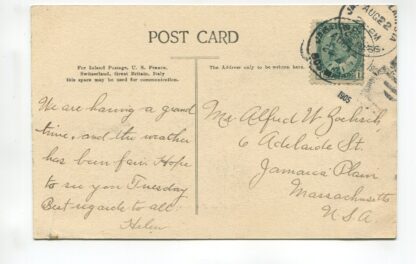 POST CARD
For Inland Postage, U. S. France,
Switzerland, Great Britain, Italy
this space may be used for communication.
The Address only to be written here.
We are having a grand
time, and the weather
has been fair. Hope
to see you Tuesday
Best regards to all
Helen
Mr Alfred W.
6 Adelaide St.
Jamaica Plain
Massachusetts
U.S.A.
AUG 22
1905